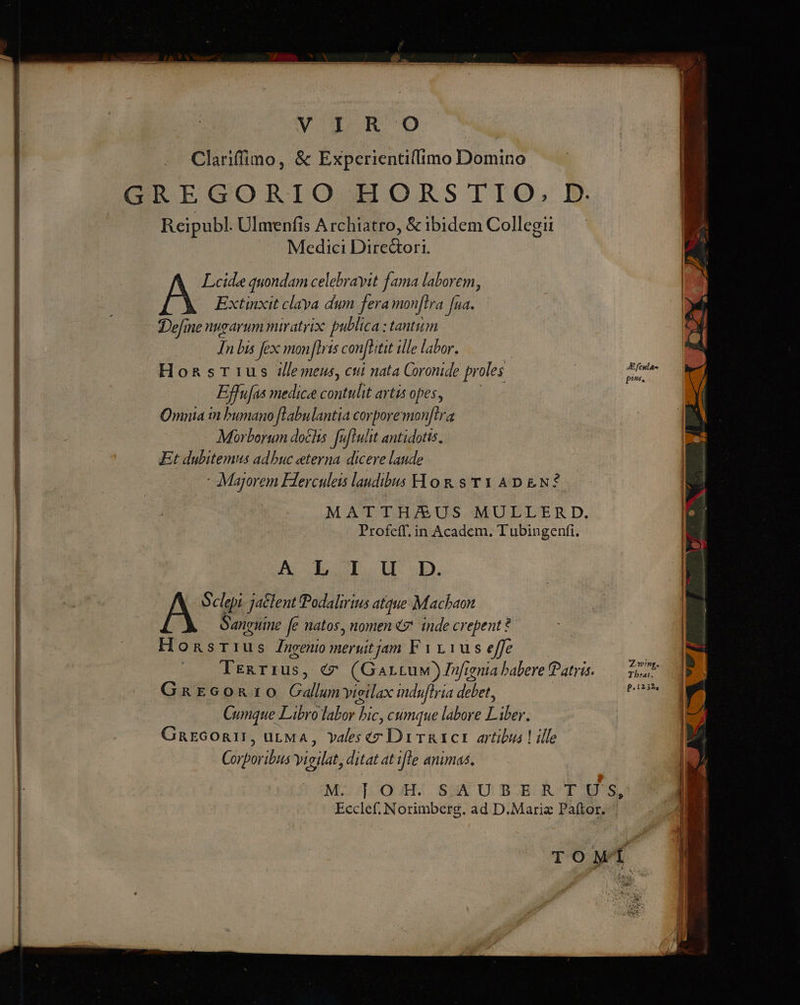 VIRO
Clariſſimo, & Experientiſſimo Domino
GREGORIO HORSTIO, D.
Reipubl. Ulmenſis Archiatro, & ibidem Collegii
Medici Directori.
ALcidæ quondam celebravit fama laborem,
Extinxit clava dum fera monſtra ſua.
Deſine nugarum miratrix publica: tantùm
In bis ſex monſtris conſtitit ille labor.
HORSTIUS ille meus, cui nata Coronide proles
Æſcula-
pius,
Effuſas medicæ contulit artis opes,
Omnia in humano ſtabulantia corpore monſtra
Morborum doctis ſuſtulit antidotis.
Et dubitemus adhuc æterna dicere laude
Majorem Herculeis laudibus HORSTIADEN?
MATTHÆUS MULLERD.
Profeſſ. in Academ. Tubingenſi.
ALIUD.
ASclepi jactent Podalirius atque Machaon
Sanguine ſe natos, nomen & inde crepent?
HORSTIUS Ingenio meruit jam FILIUS eſſe
TERTIUS, & (GALLUM) Inſignia habere Patris.
Zwing.
Theat.
p.1232,
GREGORIO Gallum vigilax induſtria debet,
Cumque Libro labor hic, cumque labore Liber.
GREGORII, ULMA, vales & DITRICI artibus! ille
Corporibus vigilat, ditat at iſte animas.
M. JOH. SAUBERTUS,
Eccleſ. Norimberg. ad D. Mariæ Paſtor.
TOMI